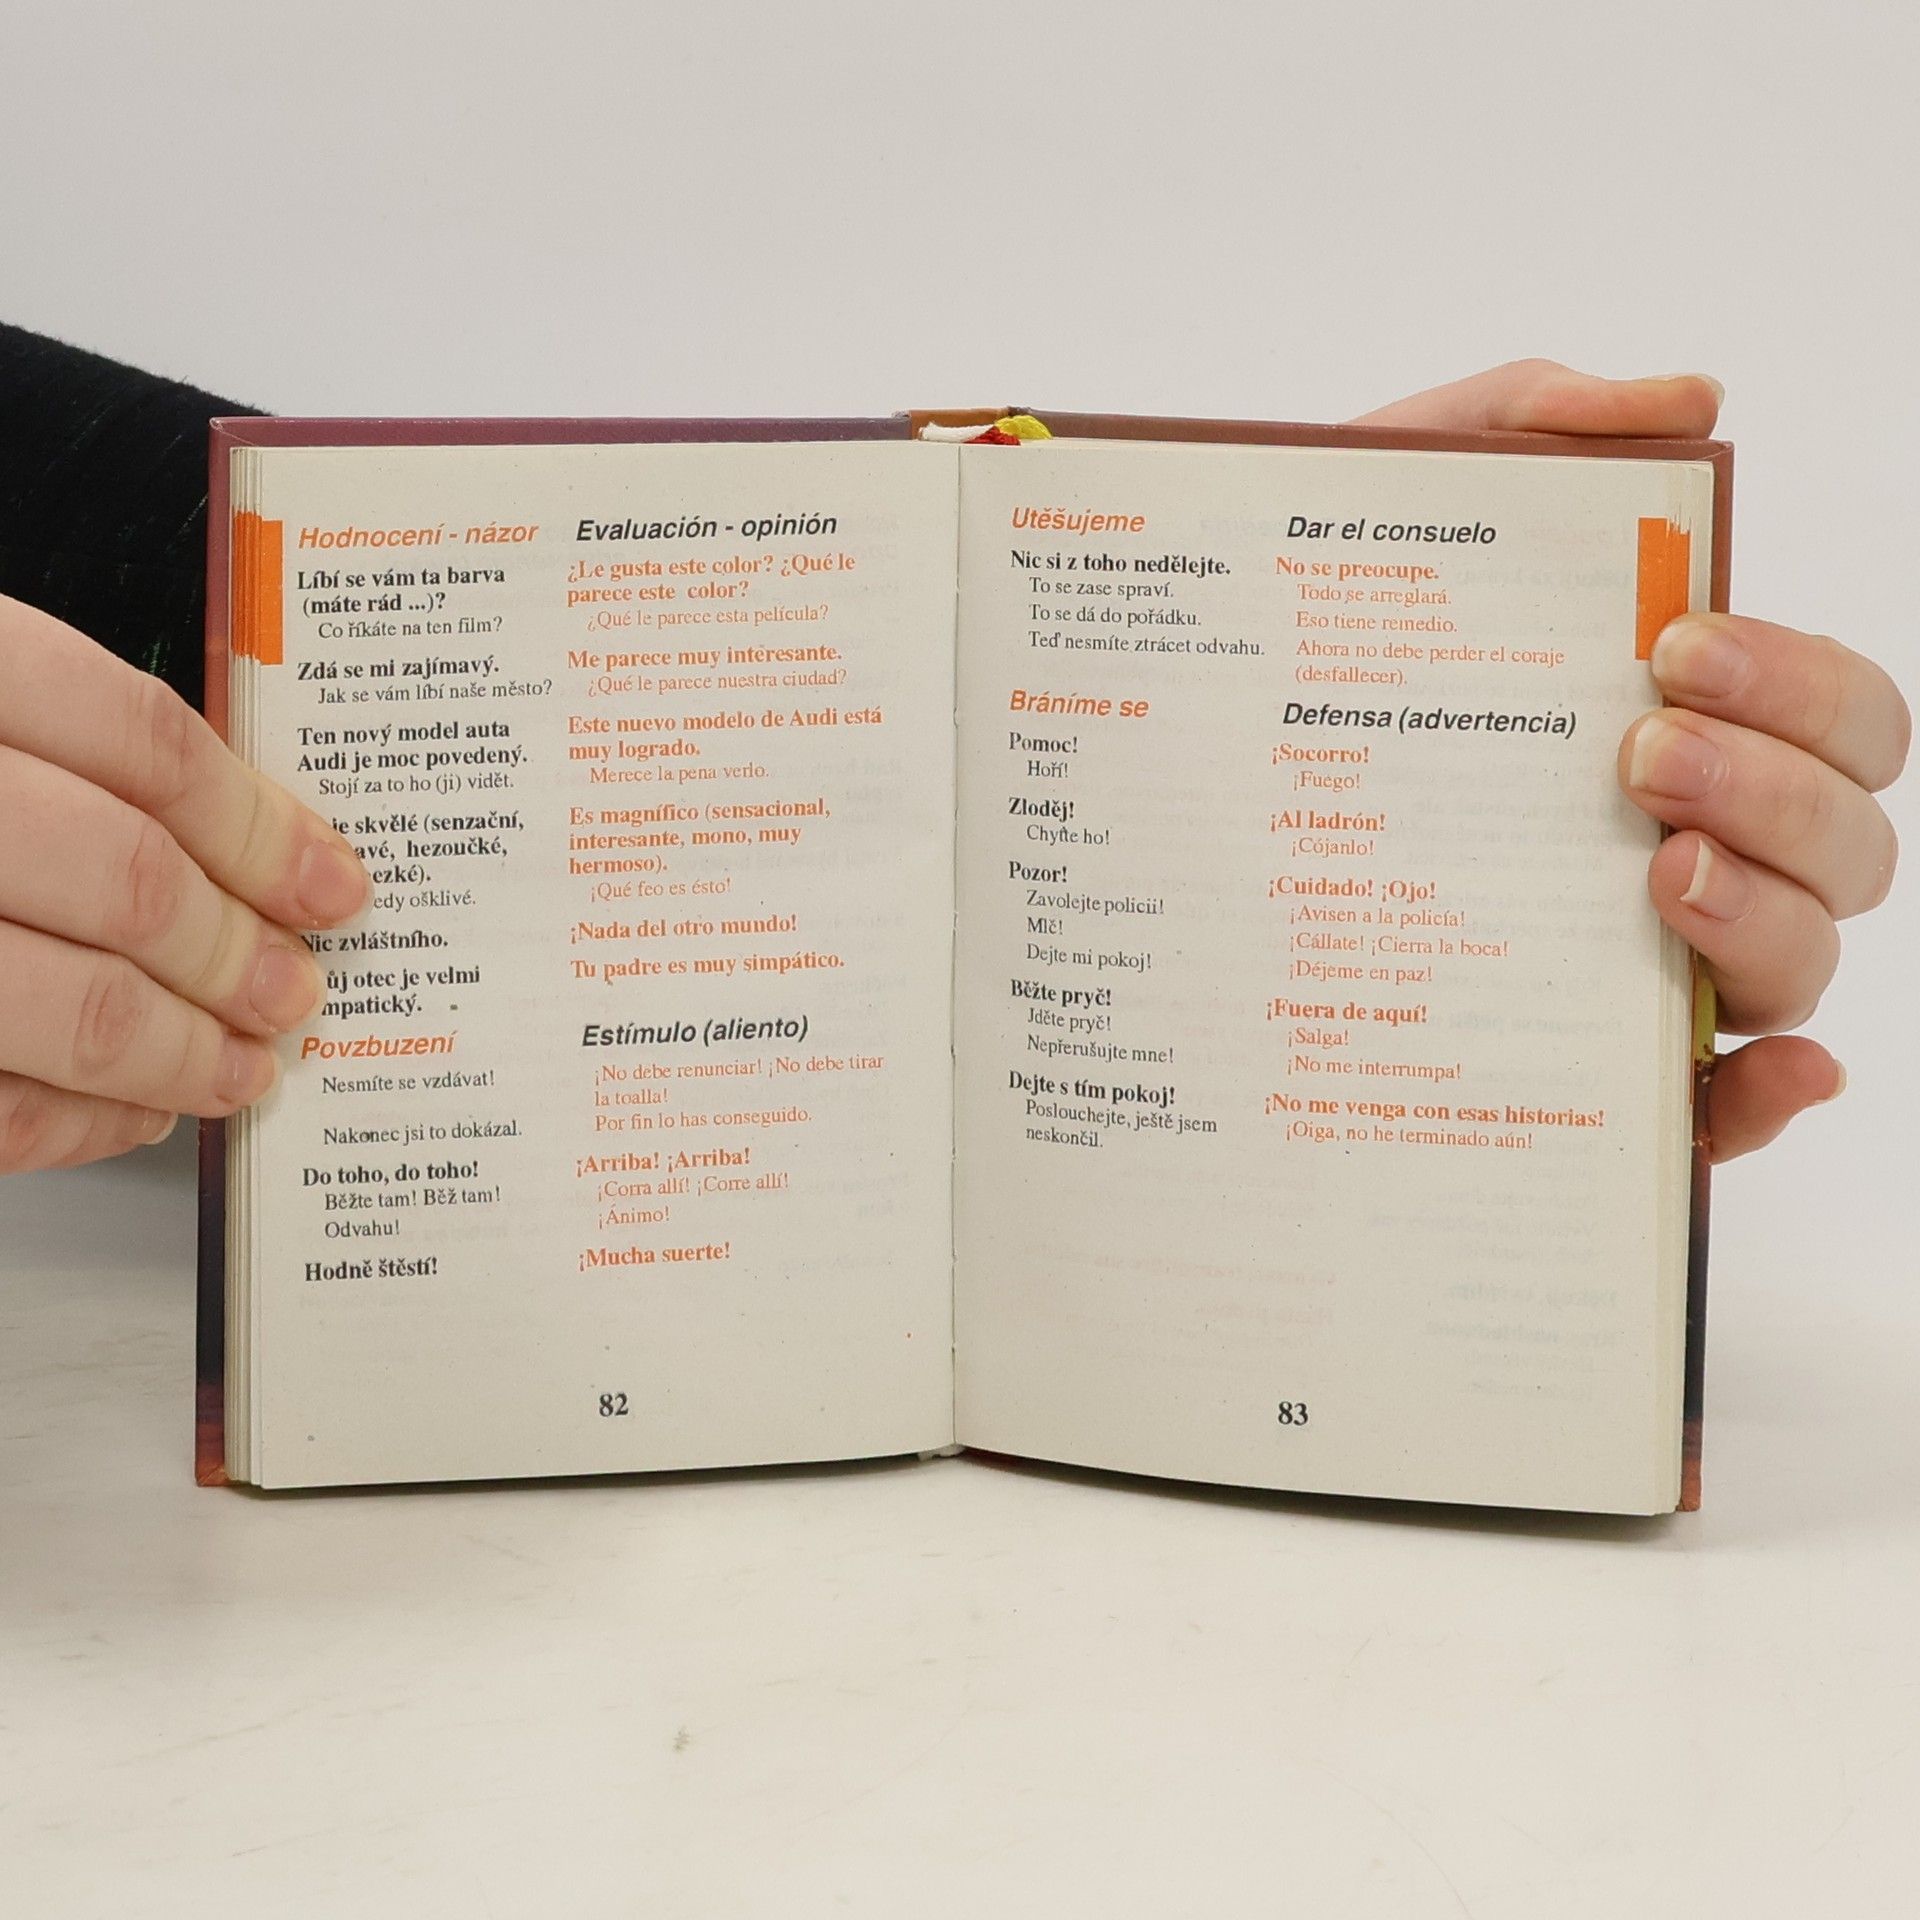 Hodnocení - názor
Líbí se vám ta barva
(máte rád ...)?
Co říkáte na ten film?
Zdá se mi zajímavý.
Jak se vám líbí naše město?
Ten nový model auta
Audi je moc povedený.
Stojí za to ho (ji) vidět.
je skvělé (senzační,
hezoučké,
ošklivé.
Nic zvláštního.
otec je velmi
Povzbuzení
Nesmíte se vzdávat!
Nakonec jsi to dokázal.
Do toho, do toho!
Běžte tam! Běž tam!
Odvahu!
Hodně štěstí!
Evaluación - opinión
¿Le gusta este color? ¿Qué le
parece este color?
¿Qué le parece esta película?
Me parece muy interesante.
¿Qué le parece nuestra ciudad?
Este nuevo modelo de Audi está
muy logrado.
Merece la pena verlo.
Es magnífico (sensacional,
interesante, mono, muy
hermoso).
¡Qué feo es ésto!
¡Nada del otro mundo!
Tu padre es muy simpático.
Estímulo (aliento)
¡No debe renunciar! ¡No debe tirar
la toalla!
Por fin lo has conseguido.
¡Arriba! ¡Arriba!
¡Corra allí! ¡Corre allí!
¡Ánimo!
¡Mucha suerte!
82
Utěšujeme
Nic si z toho nedělejte.
To se zase spraví.
To se dá do pořádku.
Teď nesmíte ztrácet odvahu.
Bráníme se
Pomoc!
Hoří!
Zloděj!
Chyťte ho!
Pozor!
Zavolejte policii!
Mlč!
Dejte mi pokoj!
Běžte pryč!
Jděte pryč!
Nepřerušujte mne!
Dejte s tím pokoj!
Poslouchejte, ještě jsem
neskončil.
Dar el consuelo
No se preocupe.
Todo se arreglará.
Eso tiene remedio.
Ahora no debe perder el coraje
(desfallecer).
Defensa (advertencia)
¡Socorro!
¡Fuego!
¡Al ladrón!
¡Cójanlo!
¡Cuidado! ¡Ojo!
¡Avisen a la policía!
¡Cállate! ¡Cierra la boca!
¡Déjeme en paz!
¡Fuera de aquí!
¡Salga!
¡No me interrumpa!
¡No me venga con esas historias!
¡Oiga, no he terminado aún!
83